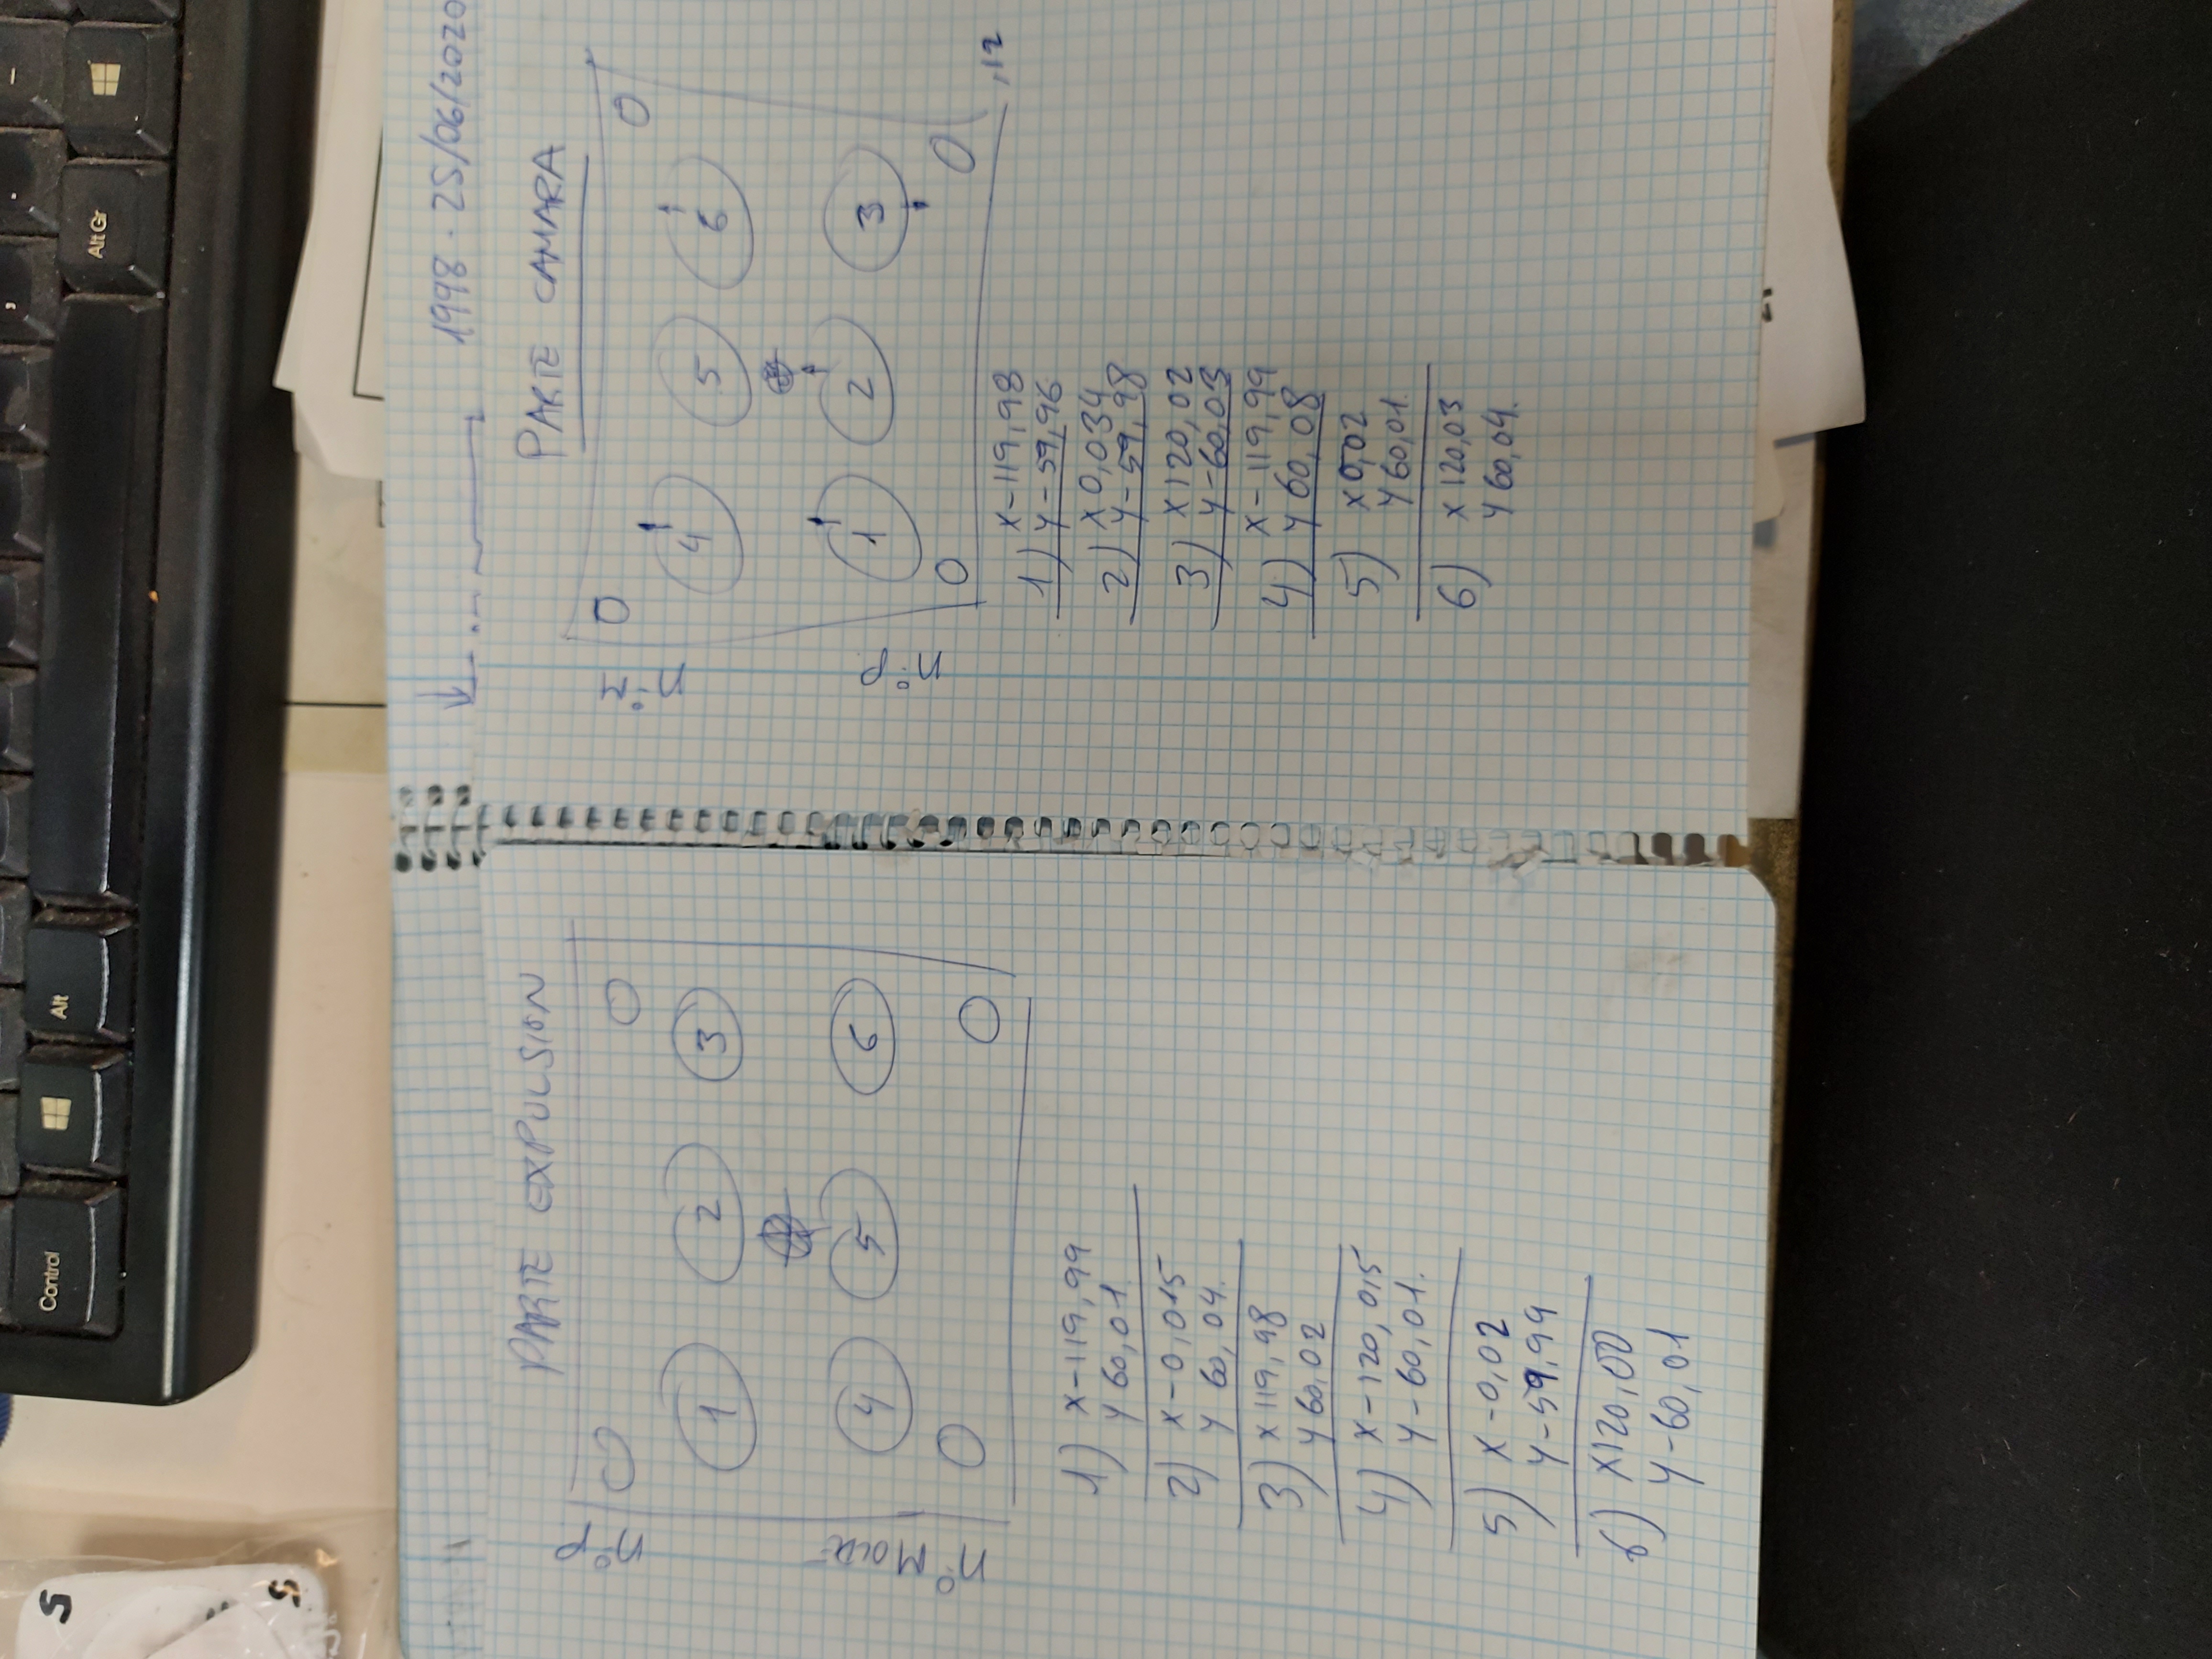 S
S
Control
Alt
Alt Gr
PARTE EXPULSION
nº P
1
2
3
4
5
6
1) X-119,99
Y 60,01.
2) X-0,015
Y 60,04.
3) X 119,98
Y 60,02
4) X-120,015
Y-60,01.
5) X-0,02
Y-59,99
6) X120,00
Y-60,01
1998 · 25/06/2020
PARTE CAMARA
4
5
6
nº P
1
2
3
,12
X-119,98
1) Y-59,96
X 0,034
2) Y-59,98
X 120,02
3) Y-60,03
X-119,99
4) Y 60,08
5) X 0,02
Y 60,01.
6) X 120,03
Y 60,04.